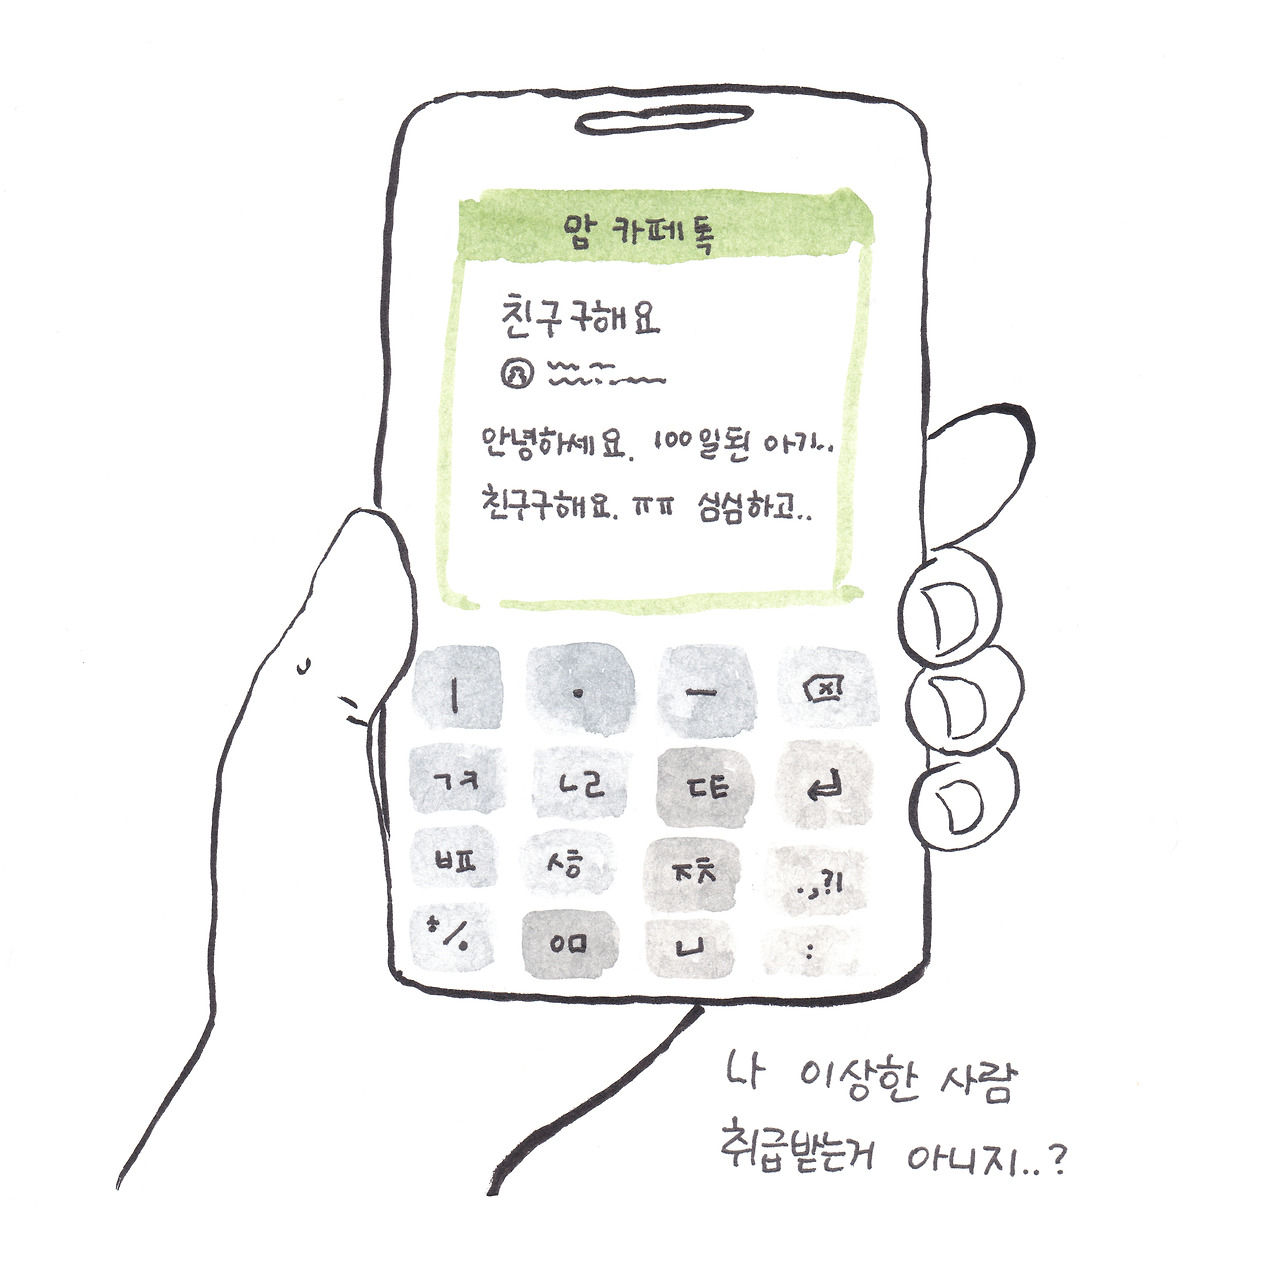 맘 카페톡
친구구해요
안녕하세요. 100일된 아기..
친구구해요. ㅠㅠ 심심하고..
ㅣ · ㅡ
ㄱㅋ ㄴㄹ ㄷㅌ
ㅂㅍ ㅅㅎ ㅈㅊ .,?!
*/. ㅇㅁ ㄴ :
나 이상한 사람
취급받는거 아니지..?